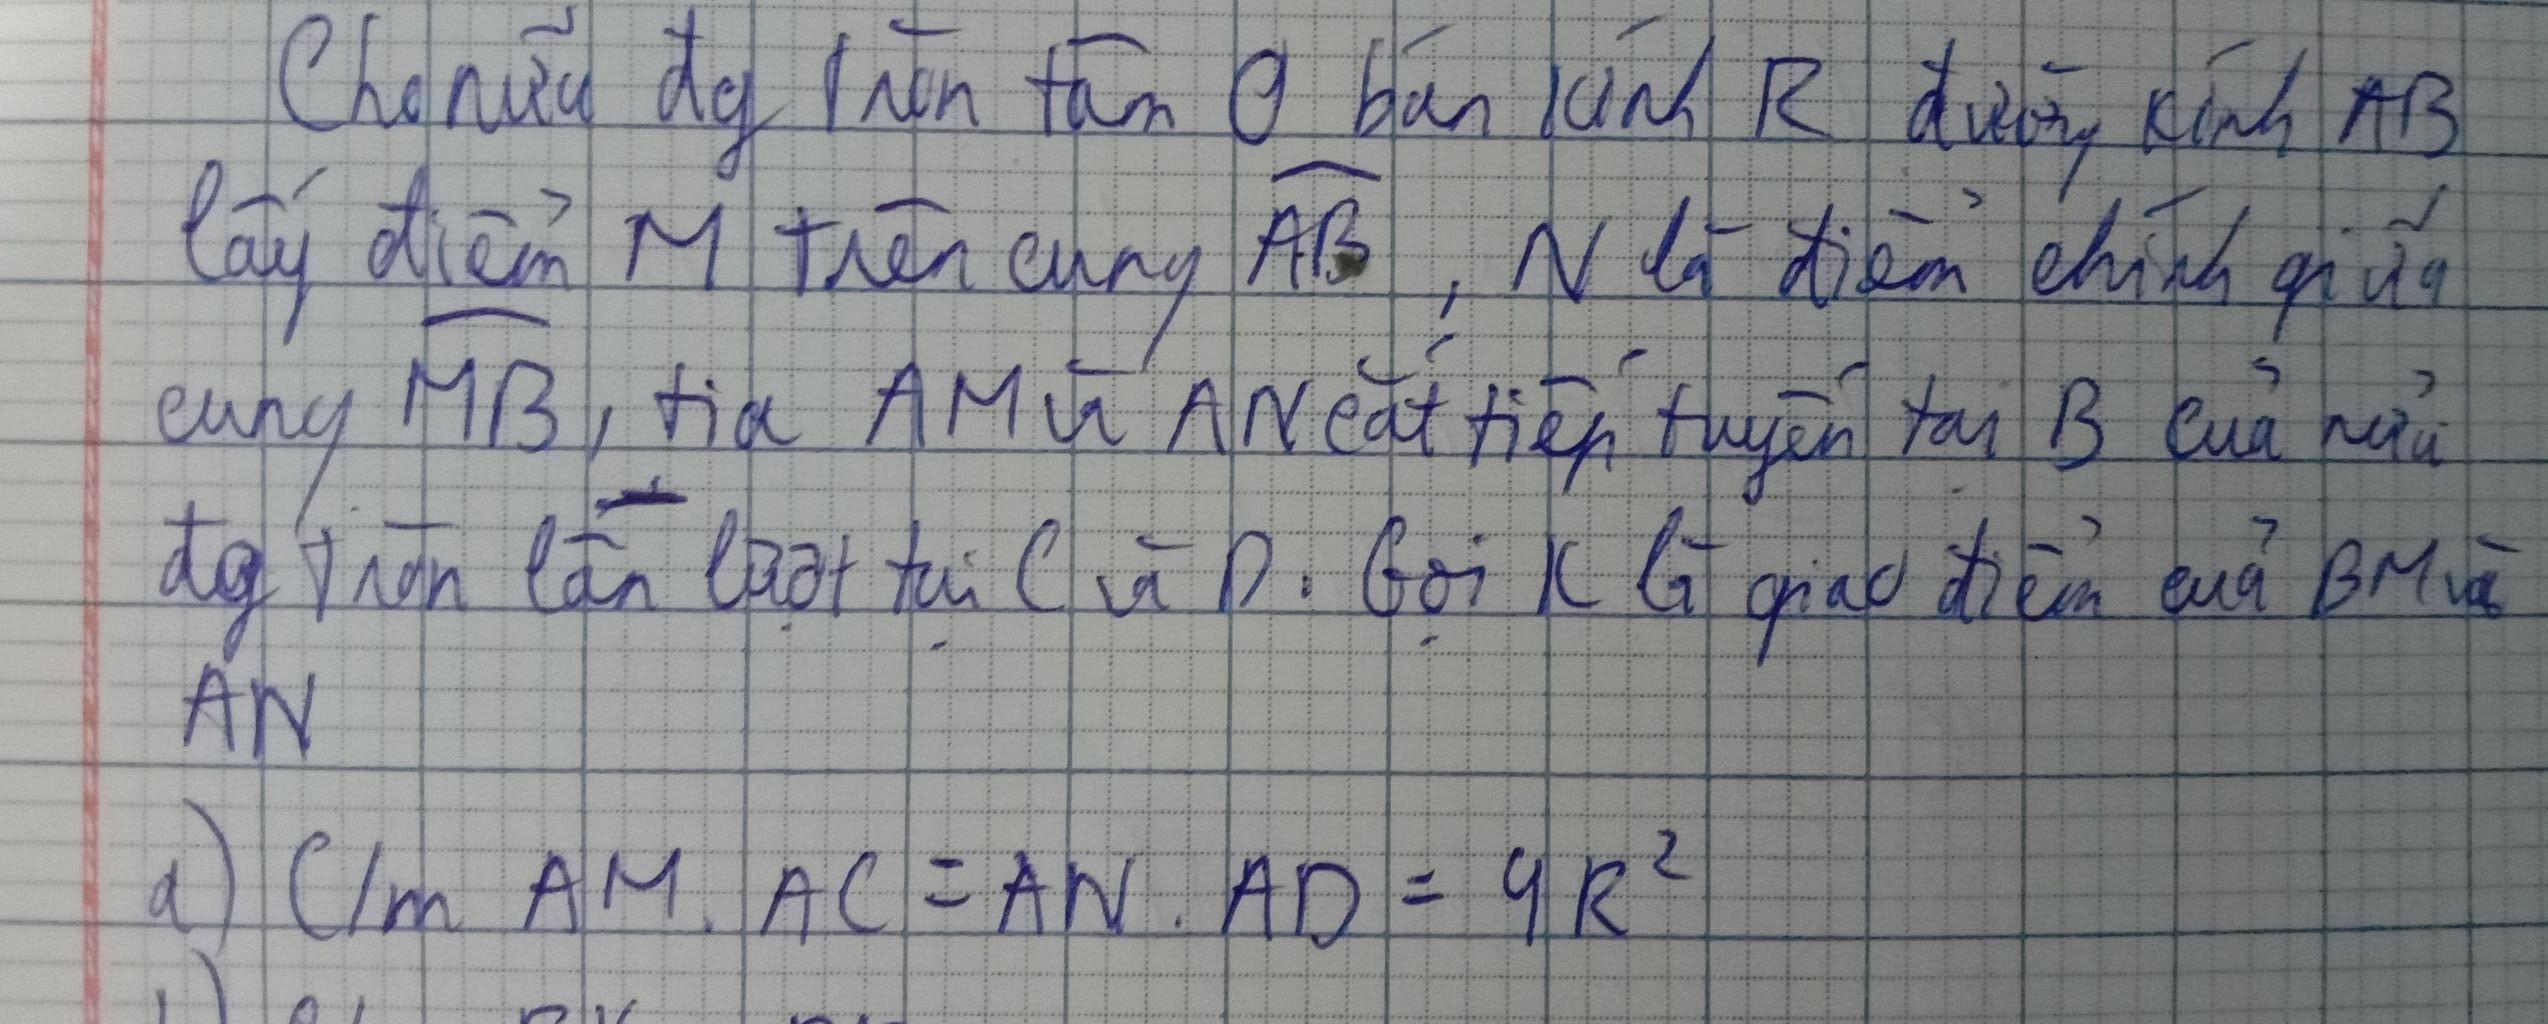 Cho nữa đg tròn tân O bán kính R đường kính AB
lấy điểm M trên cung AB, N là điểm chính giữa
cung MB, tia AM và AN cắt tiếp tuyến tại B của nửa
đg tròn lần lượt tại C và D. Gọi K là giao điểm của BM và
AN
a) C/m AM. AC = AN. AD = 4R²
b)